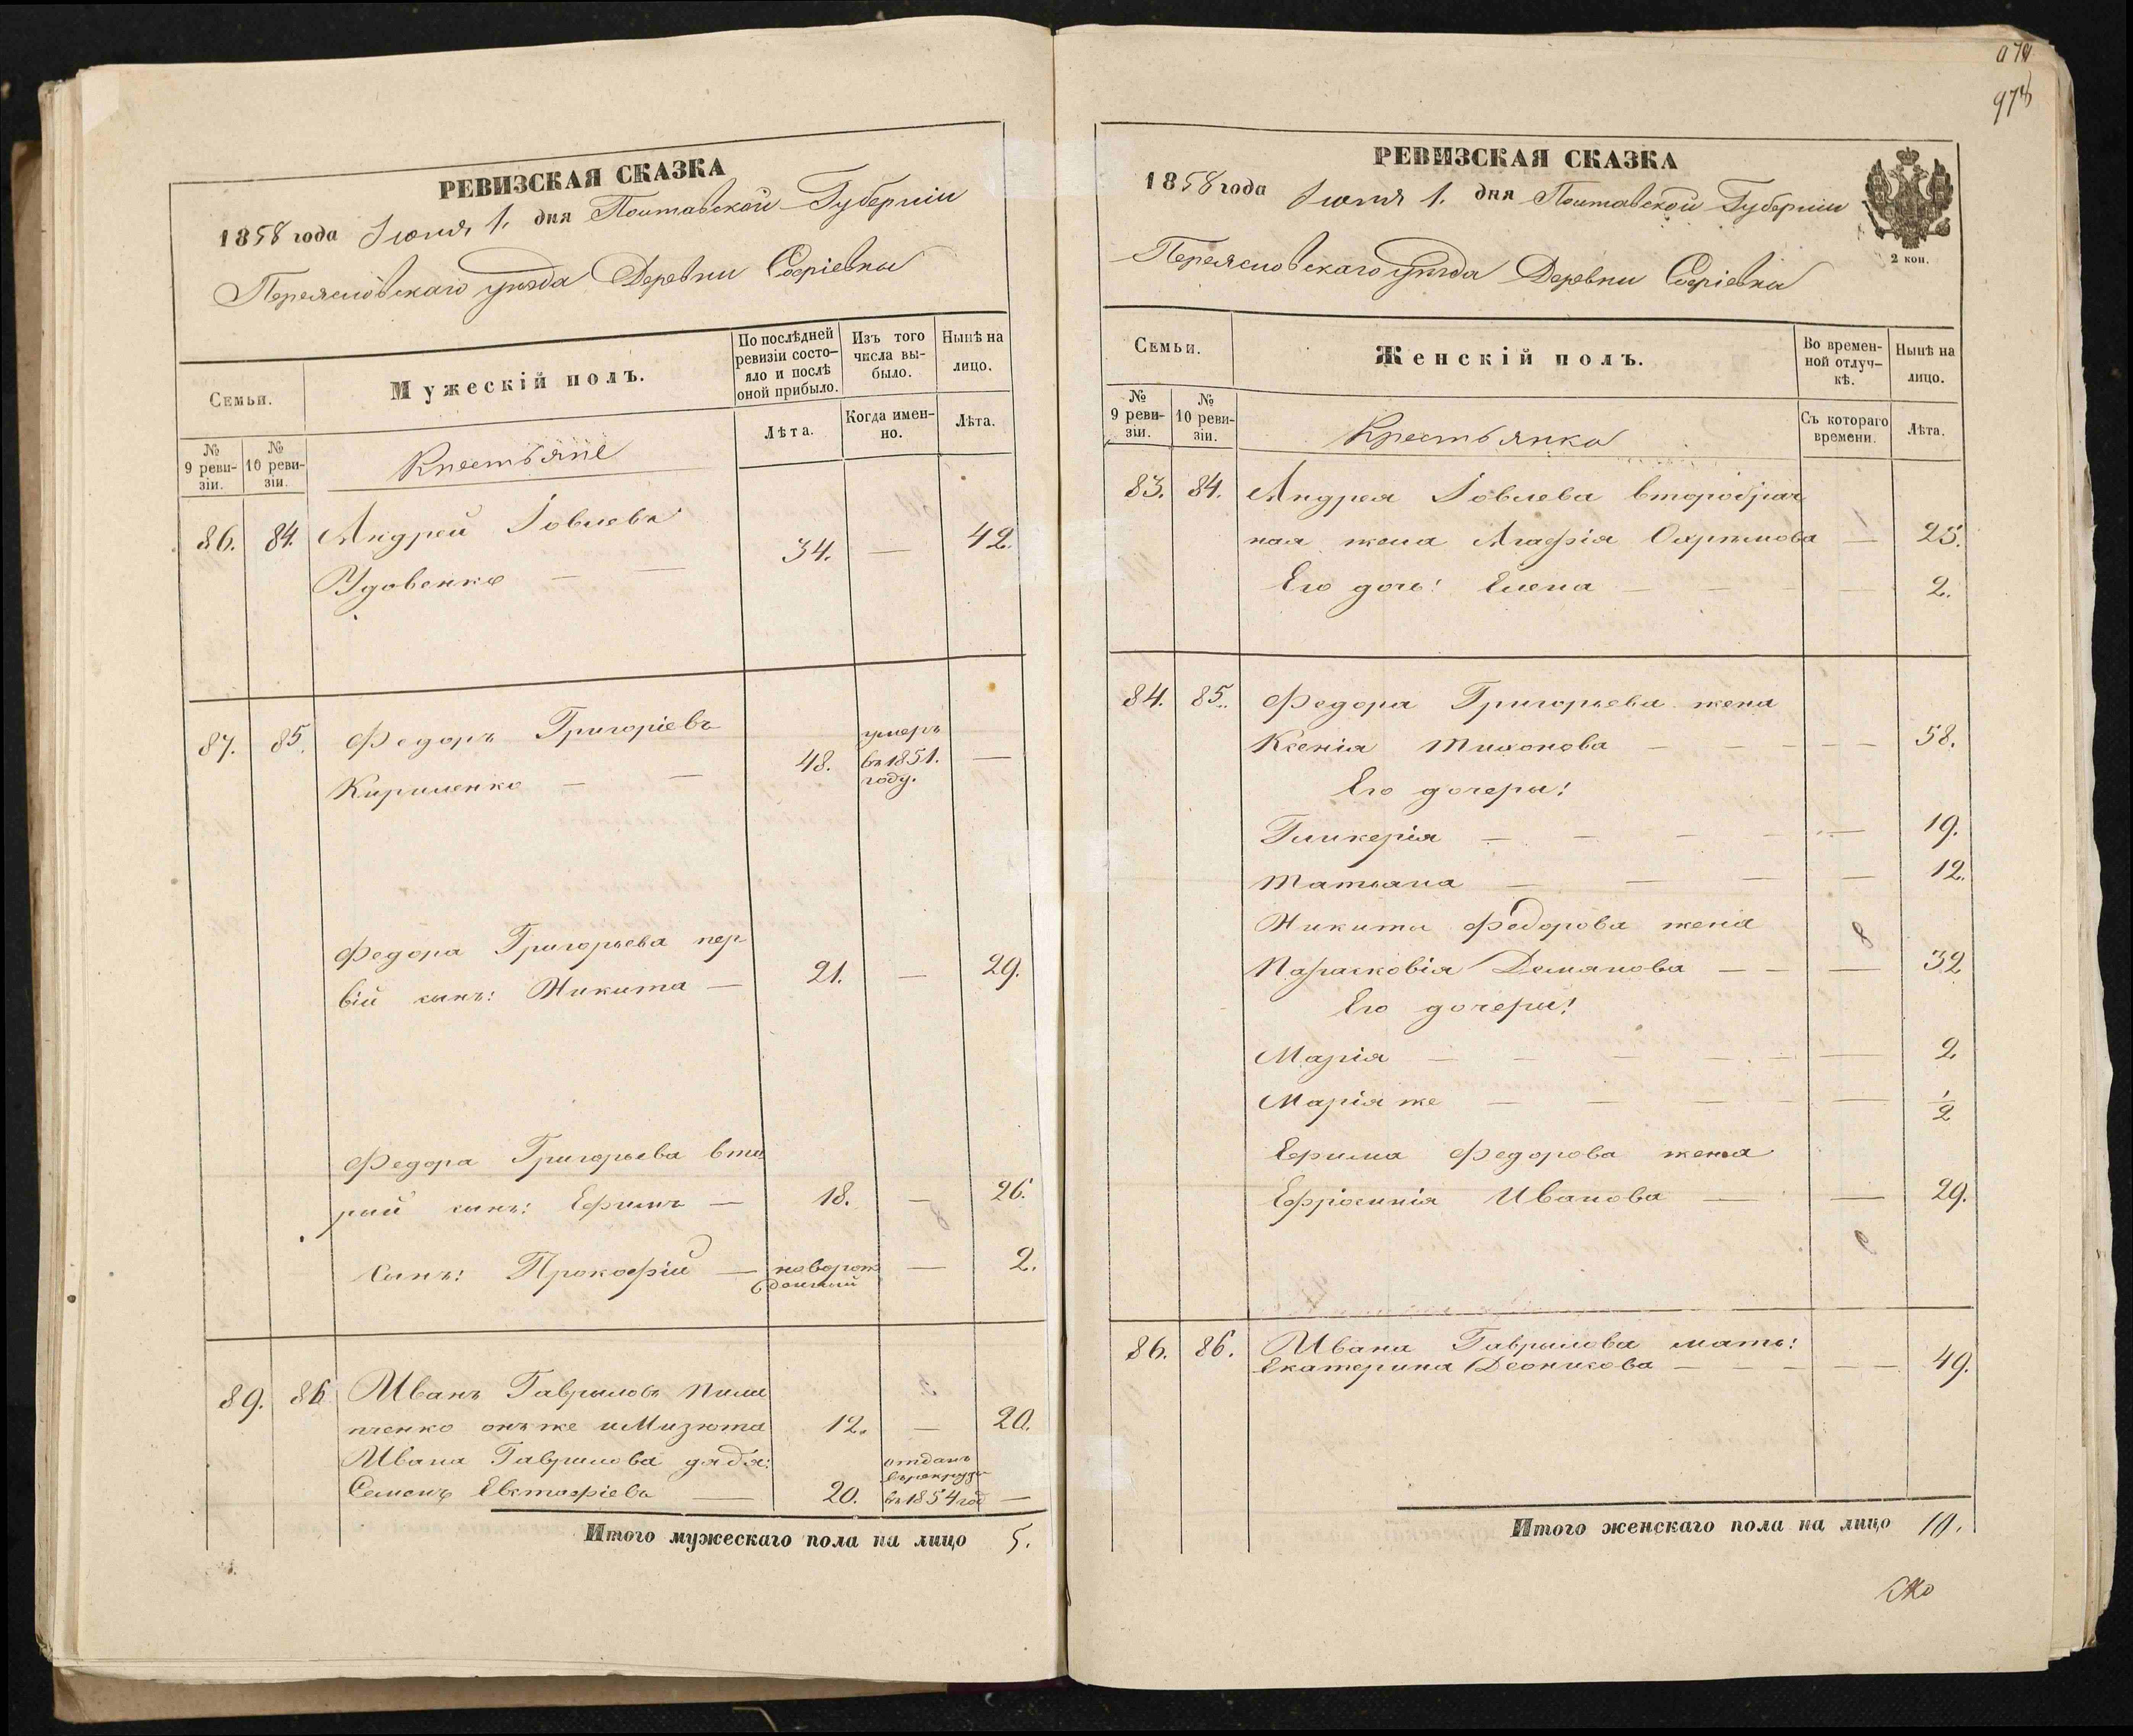 РЕВИЗСКАЯ СКАЗКА
1858 года Июня 1. дня Полтавской Губерніи
Переясловскаго уѣзда Деревни Софіевки
Семьи.
Мужескій полъ.
По послѣдней ревизіи состо-
яло и послѣ оной прибыло.
Изъ того числа вы-
было.
Нынѣ на лицо.
№ 9 реви-
зіи.
№ 10 реви-
зіи.
Крестьяне
Лѣта.
Когда имен-
но.
Лѣта.
86. 84. Андрей Іовлевъ
Удовенко — — 34. — 42.
87. 85. Федоръ Григоріевъ умеръ
Кириленко — — 48. въ 1851. —
году.
Федора Григорьева пер
вій сынъ: Никита — 21. — 29.
Федора Григорьева вто
рый сынъ: Ефимъ — 18. — 26.
Сынъ: Прокофій — новорож — 2.
денный
89. 86 Иванъ Гавриловъ Пили
пченко онъ же и Мизюта 12. — 20.
Ивана Гаврилова дядя: отданъ
въ рекруты
Семенъ Евтофіевъ — 20. въ 1854 год —
Итого мужескаго пола на лицо 5.
978
РЕВИЗСКАЯ СКАЗКА
1858 года Июня 1. дня Полтавской Губерніи
2 коп.
Переясловскаго уѣзда Деревни Софіевки
Семьи.
Женскій полъ.
Во времен-
ной отлуч-
кѣ.
Нынѣ на лицо.
№ 9 реви-
зіи.
№ 10 реви-
зіи.
Крестьянки
Съ котораго времени.
Лѣта.
83. 84. Андрея Іовлева второбрач
ная жена Агафія — 25.
Его дочь: Елена — — — 2.
84. 85. Федора Григорьева жена
Ксенія Тихонова — — — — — 58.
Его дочери:
Гликерія — — — — — 19.
Татьана — — — — 12.
Никиты Федорова жена
Парасковія Демянова — — — 32
Его дочери:
Марія — — — — — — 2
Марія же — — — — — 1/2
Ефима Федорова жена
Ефросинія Иванова — — 29.
86. 86. Ивана Гаврилова мать:
Екатерина Леоникова — — — — — 49.
Итого женскаго пола на лицо 10.